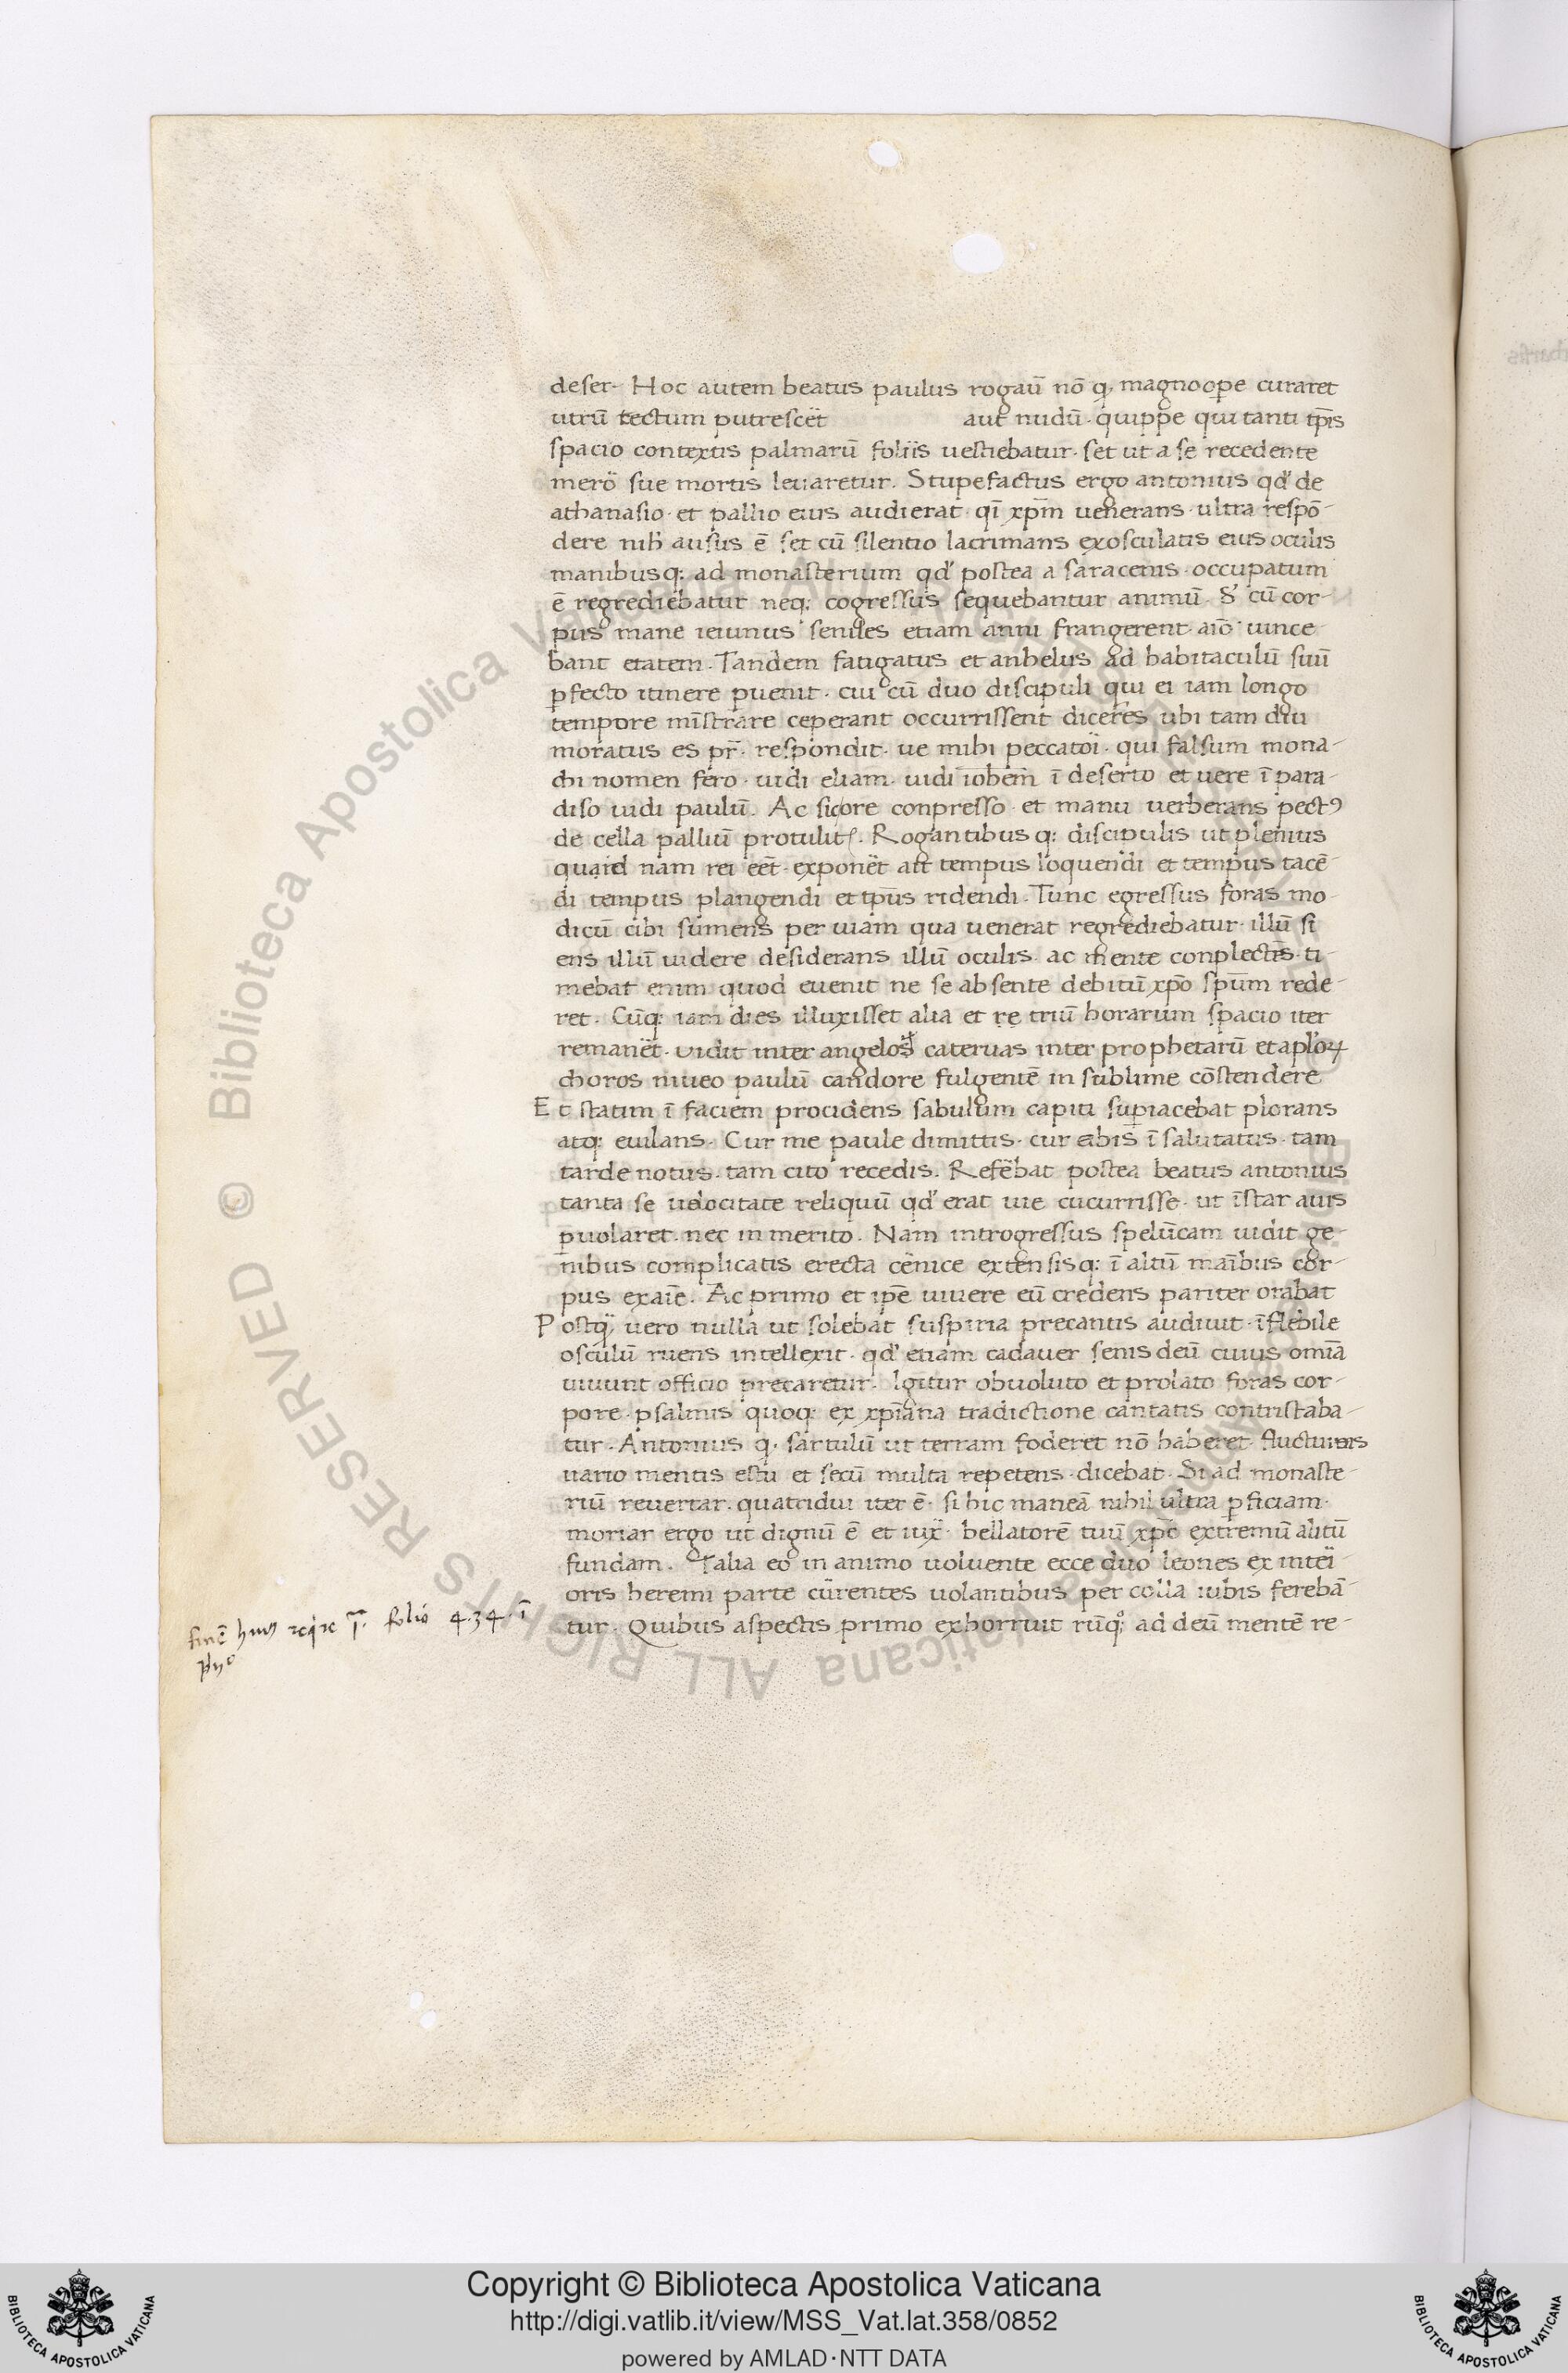 deser· Hoc autem beatus paulus rogaū nō q, magnoope curaret
utrū tectum putrescēt aut nudū· quippe qui tanti tp̄is
spacio contextis palmarū foliis uestiebatur· set ut a se recedente
merō sue mortis leuaretur. Stupefactus ergo antonius qd' de
athanasio· et pallio eius audierat· qī xp̄m uenerans· ultra respō-
dere nih ausus ē set cū silentio lacrimans exosculatis eius oculis
manibusq: ad monasterium qd' postea a saracenis· occupatum
ē regrediebatur neq: cogressus sequebantur animū· S' cū cor-
pus mane ieiunus seniles etiam anni frangerent· aīo uince
bant etatem. Tandem fatigatus et anhelus ad habitaculū suū
pfecto itinere puenit· cui cū duo discipuli qui ei iam longo
tempore mīstrare ceperant occurrissent dicētes ubi tam diu
moratus es pr̄· respondit· ue mihi peccatoī· qui falsum mona-
chi nomen fero· uidi eliam· uidi iohem̄ ī deserto et uere ī para-
diso uidi paulū. Ac sic ore conpresso· et manu uerberans pectꝰ
de cella palliū protulit. Rogantibusq: discipulis ut plenius
quid nam rei eēt· exponēt ait tempus loquendi et tempus tacē-
di tempus plangendi et tp̄us ridendi. Tunc egressus foras mo-
dicū cibi sumens per uiam qua uenerat regrediebatur· illū si
ens illū uidere desiderans illū oculis· ac mente conplectēs· ti-
mebat enim quod euenit ne se absente debitū xp̄o spūm rede-
ret. Cūq: iam dies illuxisset alia et re triū horarum spacio iter
remanēt· uidit inter angelos cateruas inter prophetarū et aplōꝝ
choros niueo paulū candore fulgentē in sublime cōstendere
Et statim ī faciem procidens sabulum capiti supiacebat plorans
atq: euilans. Cur me paule dimittis· cur abis ī salutatus· tam
tarde notus· tam cito recedis. Refēbat postea beatus antonius
tanta se uelocitate reliquū qd' erat uie cucurrisse· ut īstar auis
puolaret· nec inmerito. Nam introgressus spelūcam uidit ge-
nibus complicatis erecta cēuice extensisq: ī altū maībus cor-
pus exaīe. Ac primo et ipē uiuere eū credens pariter orabat
Postq̄, uero nulla ut solebat suspiria precantis audiuit· ī flebile
osculū ruens intellexit· qd' etiam cadauer senis deū cuius omīa
uiuunt officio precaretur· Igitur obuoluto et prolato foras cor-
pore· psalmis quoq: ex xp̄iana tradictione cantatis contristaba-
tur· Antonius q, sartulū ut terram foderet nō haberet· fluctuans
uario mentis estu et secū multa repetens· dicebat· Si ad monaste-
riū reuertar· quatridui iter ē· si hic maneā nihil ultra pficiam·
moriar ergo ut dignū ē et iux̄· bellatorē tuū xp̄e extremū alitū
fundam. Talia eo in animo uoluente ecce duo leones ex inteī-
oris heremi parte cūrentes uolantibus per colla iubis ferebā-
tur· Quibus aspectis primo exhorruit rūq: ad deū mentē re-
finē huiꝰ reqire folio 434· ī
Copyright © Biblioteca Apostolica Vaticana
http://digi.vatlib.it/view/MSS_Vat.lat.358/0852
powered by AMLAD·NTT DATA
BIBLIOTECA APOSTOLICA VATICANA
BIBLIOTECA APOSTOLICA VATICANA
© Biblioteca Apostolica Vaticana ALL RIGHTS RESERVED